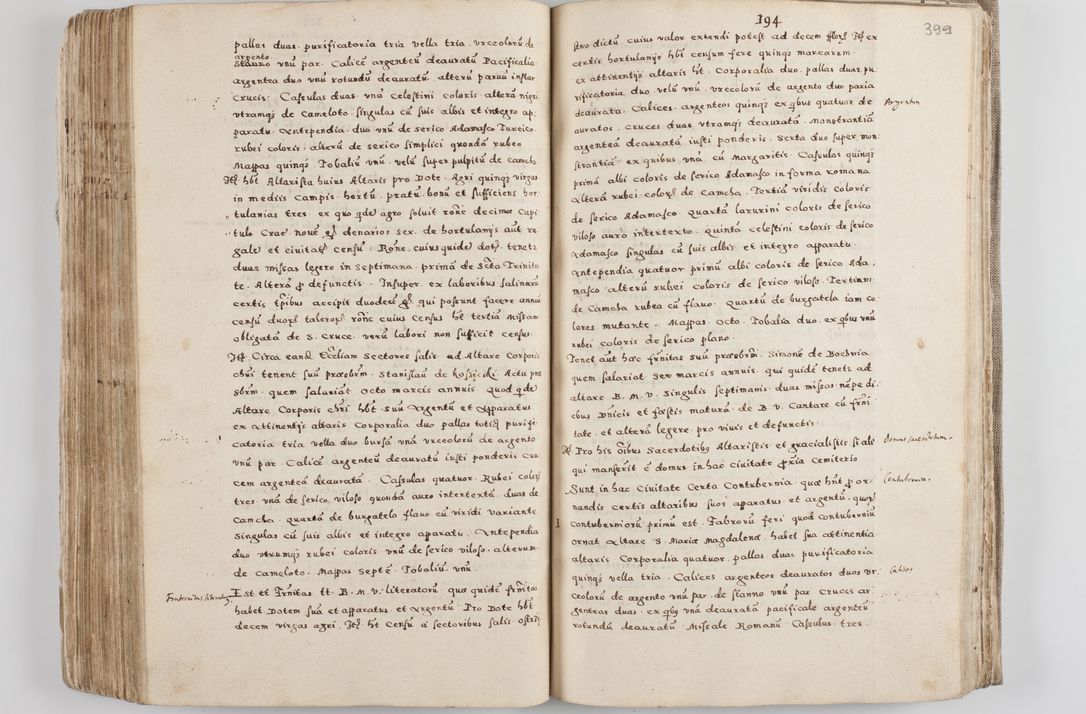 pallas duas purificatoria tria vella tria vrceolorũ de
argento
stanno vnũ par. Calicẽ argenteũ deauratũ Pacificalia
argentea duo vnũ rotundũ deauratũ alterũ paruũ instar
Crucis. Casulas duas vnã celestini coloris alterã nigri
vtramqʒ de Cameloto singulas cũ suis albis et integro ap:
paratu Antependia duo vnũ de serico Adamasco Turcico
rubei coloris alterũ de serico simplici quondã rubeo
Mappas quinqʒ Tobaliũ vnũ velũ super pulpitũ de camcha
Itẽ hẽt Altarista huius Altaris pro Dote Agri quinqʒ virgas
in mediis Campis hortũ pratũ bonũ et sufficiens hor
tulanias tres ex quo qde agro soluit rõne decimæ Capi
tulo Crac. nouẽ denarios sex de hortulanijs aũt re
gale et ciuitatẽ censũ Rõne cuius quidẽ dotis tenetʒ
duas missas legere in septimana primã de Scta Trinita
te Alterã p̱ defunctis Insuper ex laboribus Salinarũ
certis tp̃ibus accipit duodecẽ qui possunt facere annui
censũ duorũ talerorũ rõne cuius census hẽt tertiã Missam
obligatã de S. Cruce verũ labori non sufficit census
Itẽ Circa eandẽ Eccliam Sectores salis ad Altare Corporis
chri tenent suũ præsbrm Stanislaũ de
sbrm quem salariãt octo marcis annuis Quod qde
Altare Corporis chri hẽt suũ Argentũ et Apparatus
ex attinentijs altaris Corporalia duo pallas totidẽ purifi
catoria tria vella duo bursã vnã vrceolorũ de argento
vnũ par Calicẽ argenteũ deauratũ iusti ponderis Cru
cem argenteã deauratã Casulas quatuor Rubei colorʒ
tres vnã de serico viloso quondã auro intertextã duas de
camcha quartã de burgatela flauo cũ viridi variante
Singulas cũ suis albis et integro apparatu Antependia
duo vtrumqʒ rubei coloris vnũ de serico viloso alterum
de cameloto Mappas septẽ Tobaliũ vnũ
Est et frñitas tt. B. M. V. literatorũ quæ quidẽ frñitas
habet Dotem suã et apparatus et Argentũ Pro Dote hẽt
decem virgas agri. Itẽ hẽt censũ a sectoribus salis
194
399
stro dictũ cuius valor extendi potest ad decem flor. Itẽ ex
certis hortulanijs hẽt censum fere quinqʒ marcarum
ex attinentijs altaris hẽt Corporalia duo pallas duas pu
rificatoria duo velũ vnũ vrceolorũ de argento duo paria
Argentum
deaurata Calices argenteos quinqʒ ex qbus quatuor de
auratos Cruces duas vtramqʒ deauratã Monstrantiã
argenteã deauratã iusti ponderis Serta duo super mon
strantiã ex quibus vnũ cũ Margaritis Casulas quinqʒ
primã albi coloris de serico Adamasco in forma romana
alterã rubei colorʒ de camcha Tertiã viridis coloris
de serico Adamasco Quartã lazurini coloris de serico
viloso auro intertexto Quintã celestini coloris de serico
Adamasco singulas cũ suis albis et integro apparatu
Antependia quatuor primũ albi coloris de serico Ada,
masco alterũ rubei coloris de serico viloso Tertium
de Camcha rubea cũ flauo Quartũ de burgatela iam co
lores mutante. Mappas octo Tobalia duo ex qbus vnũ
rubei coloris de serico plano
Tenet aũt hæc frñitas suũ præsbrm Simonẽ de Bochnia
quem salariat sex marcis annuis qui quidẽ tenetʒ ad
altare B. M. V. Singulis septimanis duas missas nẽpe di
ebus Dñicis et fæstis maturã de B. V. Cantare cũ frñi
tate et alterã legere pro viuis et defunctis
Itẽ Pro his oĩbus Sacerdotibus Altaristis et gracialistis si ali
Domus sacerdotum.
qui manserit ẽ domus in hac ciuitate pp̱ria Cemiterio
Sunt in hac Ciuitate Certa Contubernia quæ hñt p̱ or
Contubernia.
nandis certis altaribus suos aparatus et argentũ quorʒ
contuberniorũ primũ est Fabrorũ feri quod contuberniũ
ornat Altare S. Mariæ Magdalenæ habet sua attinentia
altaris Corporalia quatuor pallas duas purificatoria
quinqʒ vella tria Calices argenteos deauratos duos vr
Calices
ceolorũ de argento vnũ par de stanno vnũ par Cruces ar
genteas duas ex qbus vnã deauratã pacificale argenteũ
rotundũ deauratũ Missale Romanũ Casulas tres